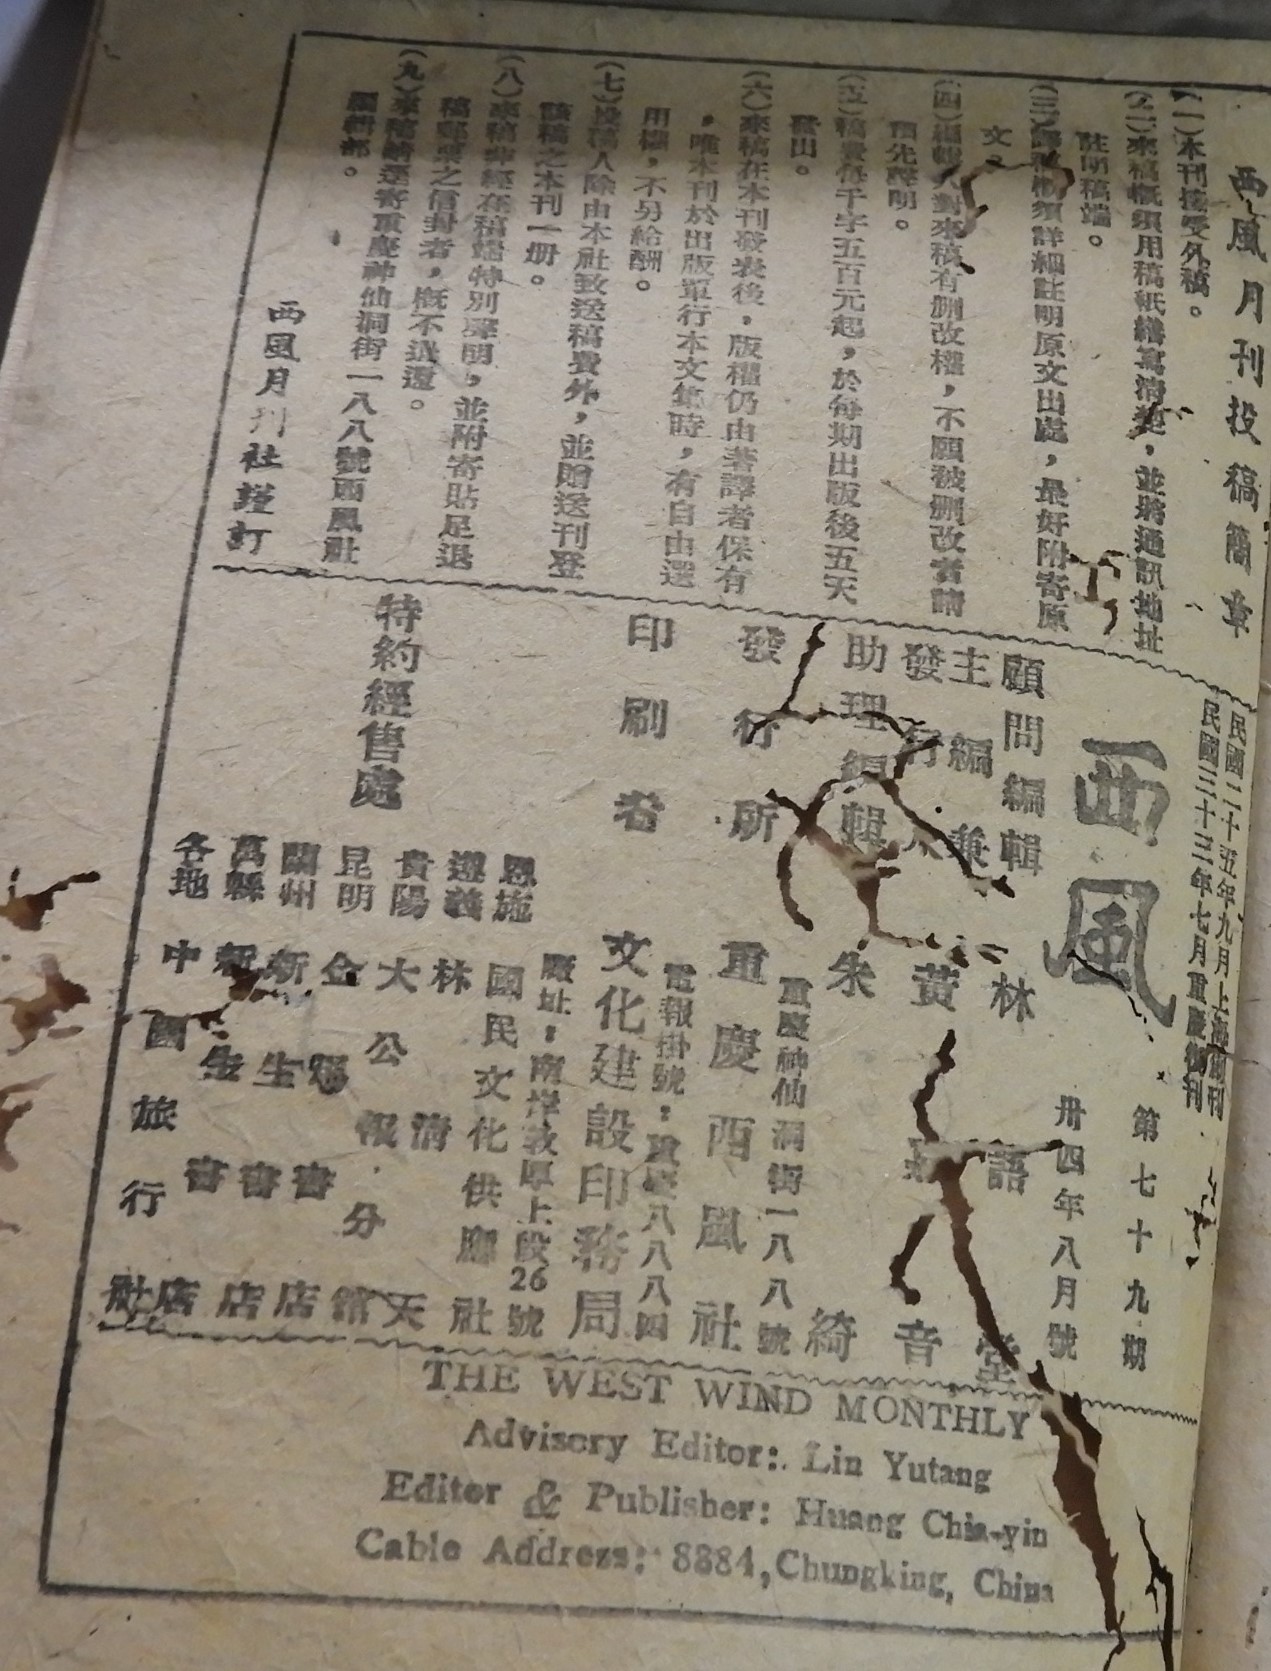 西風月刊投稿簡章
(一)本刊接受外稿。
(二)來稿概須用稿紙繕寫清楚，並將通訊地址
註明稿端。
(三)譯稿概須詳細註明原文出處，最好附寄原
文。
(四)編輯人對來稿有删改權，不願被删改者請
預先聲明。
(五)稿費每千字五百元起，於每期出版後五天
發出。
(六)來稿在本刊發表後，版權仍由著譯者保有
，唯本刊於出版單行本文集時，有自由選
用權，不另給酬。
(七)投稿人除由本社致送稿費外，並贈送刊登
該稿之本刊一册。
(八)來稿非經在稿端特別聲明，並附寄貼足退
稿郵票之信封者，概不退還。
(九)來稿請逕寄重慶神仙洞街一八八號西風社
編輯部。
西風月刊社謹訂
民國二十五年九月上海創刊
民國三十三年七月重慶復刊
西風
第七十九期
卅四年八月號
顧問編輯 林語堂
主編兼
發行人 黃嘉音
助理編輯 朱綺
重慶神仙洞街一八八號
發行所 重慶西風社
電報掛號：重慶八八八四
印刷者 文化建設印務局
廠址：南岸敦厚上段26號
特約經售處
恩施 國民文化供應社
遵義 林清天
貴陽 大公報分館
昆明 金書店
蘭州 新生書店
萬縣 新生書店
各地 中國旅行社
THE WEST WIND MONTHLY
Advisory Editor: Lin Yutang
Editor & Publisher: Huang Chia-yin
Cable Address: 8884, Chungking, China